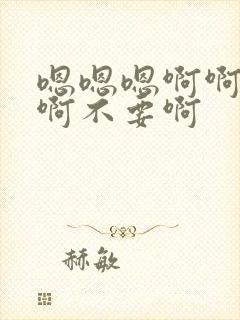 嗯嗯嗯啊啊
啊不要啊
赫敏